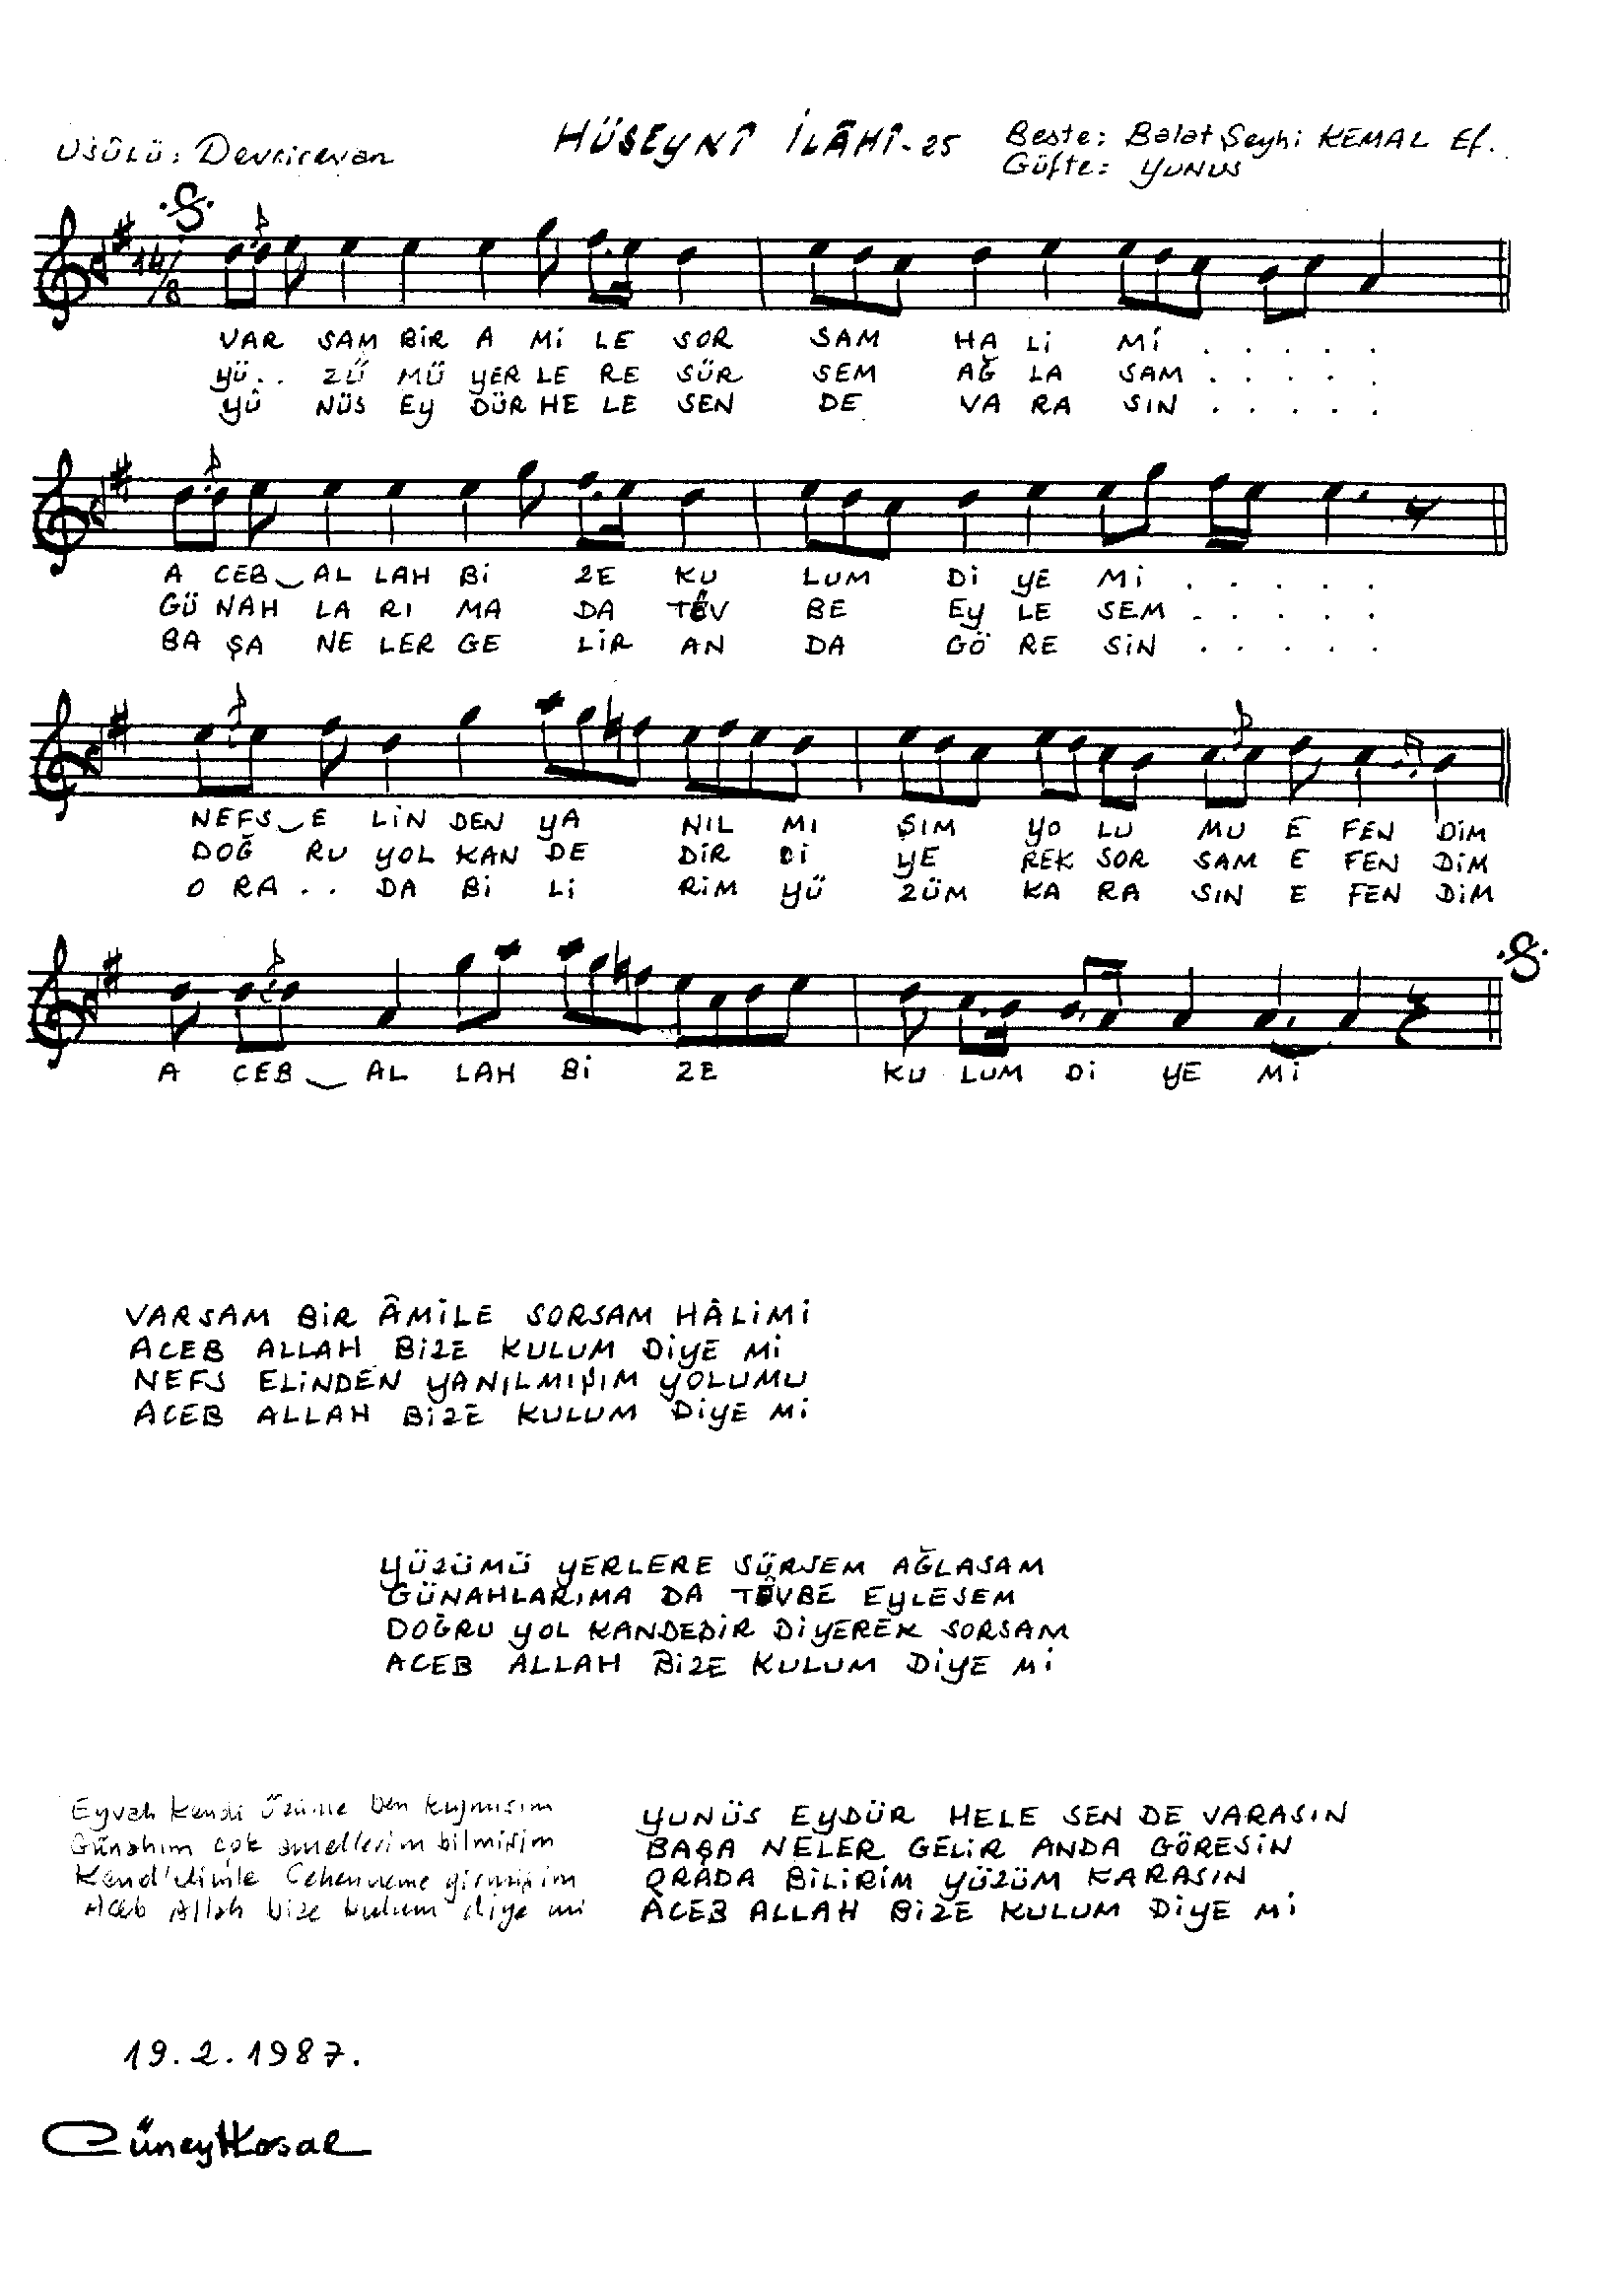 USÛLÜ: Devrirevan
HÜSEYNÎ İLÂHÎ-25
Beste: Balat Şeyhi KEMAL Ef.
Güfte: YUNUS
14/8
VAR SAM BİR A Mİ LE SOR SAM HA Lİ Mİ . . . . .
YÜ . . ZÜ MÜ YER LE RE SÜR SEM AĞ LA SAM . . . . .
YÛ NÜS EY DÜR HE LE SEN DE VA RA SIN . . . . .
A CEB AL LAH Bİ ZE KU LUM Dİ YE Mİ . . . . .
GÜ NAH LA RI MA DA TÊV BE EY LE SEM . . . . .
BA ŞA NE LER GE LİR AN DA GÖ RE SİN . . . . .
NEFS E LİN DEN YA NIL MI ŞIM YO LU MU E FEN DİM
DOĞ RU YOL KAN DE DİR Dİ YE REK SOR SAM E FEN DİM
O RA . . DA Bİ Lİ RİM YÜ ZÜM KA RA SIN E FEN DİM
A CEB AL LAH Bİ ZE KU LUM Dİ YE Mİ
VARSAM BİR ÂMİLE SORSAM HÂLİMİ
ACEB ALLAH BİZE KULUM DİYE Mİ
NEFS ELİNDEN YANILMIŞIM YOLUMU
ACEB ALLAH BİZE KULUM DİYE Mİ
YÜZÜMÜ YERLERE SÜRSEM AĞLASAM
GÜNAHLARIMA DA TÊVBE EYLESEM
DOĞRU YOL KANDEDİR DİYEREK SORSAM
ACEB ALLAH BİZE KULUM DİYE Mİ
Eyvah Kendi Özüme ben kıymışım
Günahım çok amellerim bilmişim
Kend'elimle Cehenneme girmişim
Aceb Allah bize kulum diye mi
YUNÜS EYDÜR HELE SEN DE VARASIN
BAŞA NELER GELİR ANDA GÖRESİN
ORADA BİLİRİM YÜZÜM KARASIN
ACEB ALLAH BİZE KULUM DİYE Mİ
19.2.1987.
Cüneyt Kosal